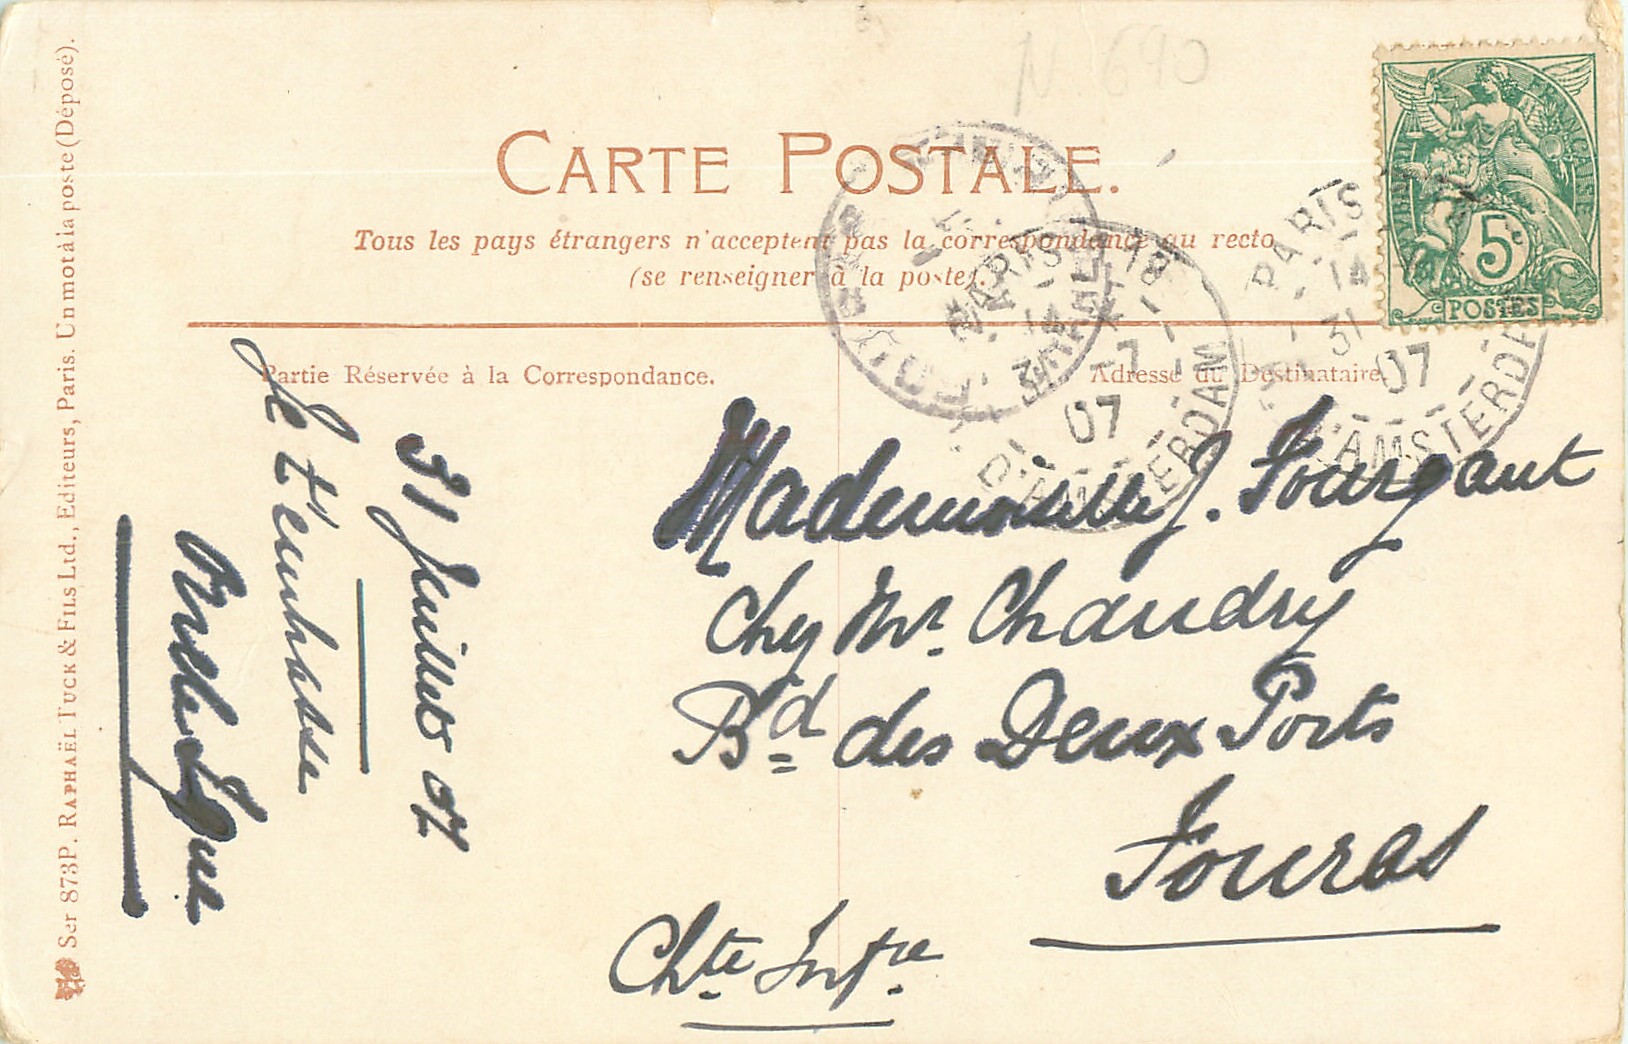 N. 690
CARTE POSTALE.
Tous les pays étrangers n'acceptent pas la correspondance au recto
(se renseigner à la poste).
Partie Réservée à la Correspondance.
Adresse du Destinataire.
RÉPUBLIQUE FRANÇAISE
5c
POSTES
PARIS 18
14
31 -7
07
D'AMSTERDAM
PARIS
14
31
07
D'AMSTERDAM
31 Juillet 07
Je t'embrasse
Mademoiselle J. Fourgaut
Chez Mr. Chaudry
Bd des Deux Ports
Fouras
Chte Infre
Ser 873P. RAPHAËL TUCK & FILS Ltd., Editeurs, Paris. Un mot à la poste (Déposé).